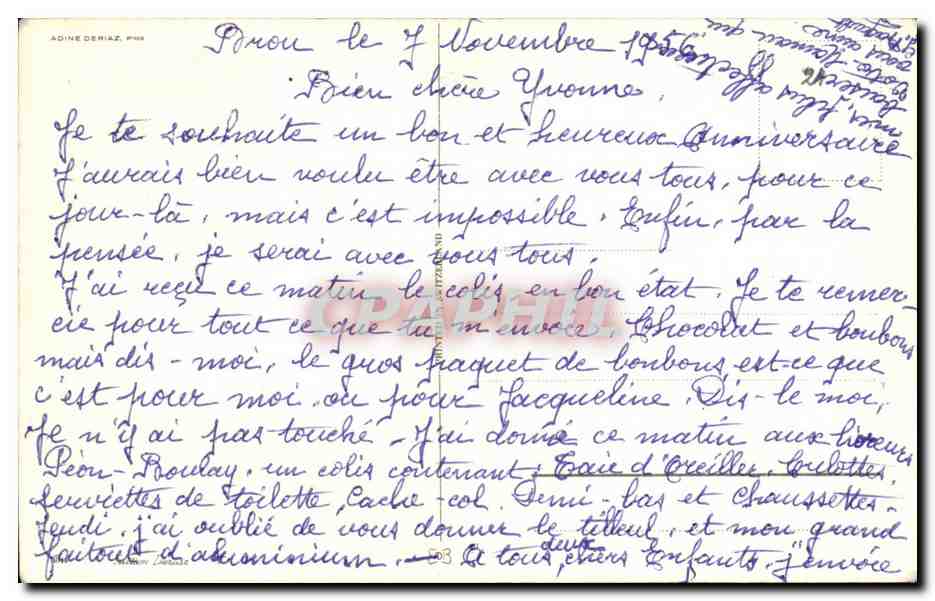 ADINE DERIAZ, 
Bron le 7 Novembre 1956
Bien chère Yvonne,
Je te souhaite un bon et heureux Anniversaire
J'aurais bien voulu être avec vous tous, pour ce
jour-là, mais c'est impossible. Enfin, par la
pensée, je serai avec vous tous.
J'ai reçu ce matin le colis en bon état. Je te remer-
cie pour tout ce que tu m'envoie. Chocolat et bonbons
mais dis-moi, le gros paquet de bonbons, est-ce que
c'est pour moi ou pour Jacqueline. Dis-le moi,
Je n'y ai pas touché. J'ai donné ce matin aux livreurs
Péon-Boulay, un colis contenant: Taie d'Oreiller, Culottes,
Serviettes de toilette, Cache-col. Demi-bas et chaussettes.
Jeudi, j'ai oublié de vous donner le tilleul, et mon grand
faitout d'aluminium. — A tous deux, chers Enfants, j'envoie
mes plus affectueux
baisers.
votre Maman qui
vous aime
PRINTED IN SWITZERLAND
CPAPHIL
24